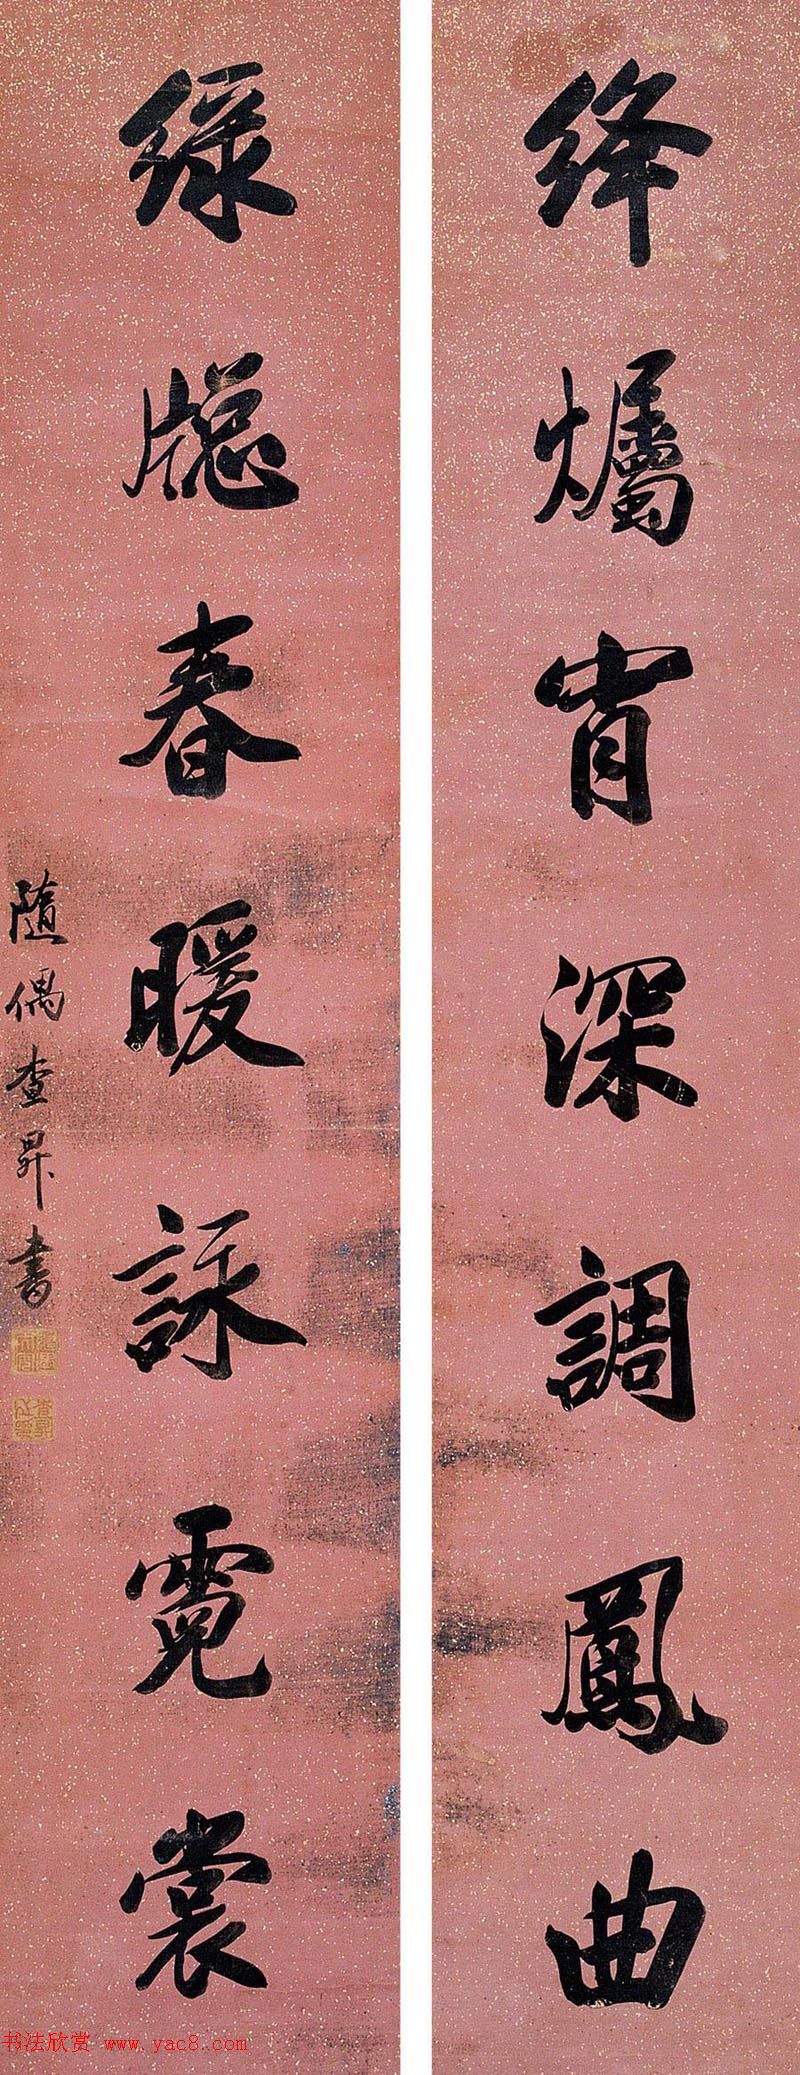 绛爥宵深調鳳曲
綠牎春暖詠霓裳
隨偶查昇書
书法欣赏 www.yac8.com